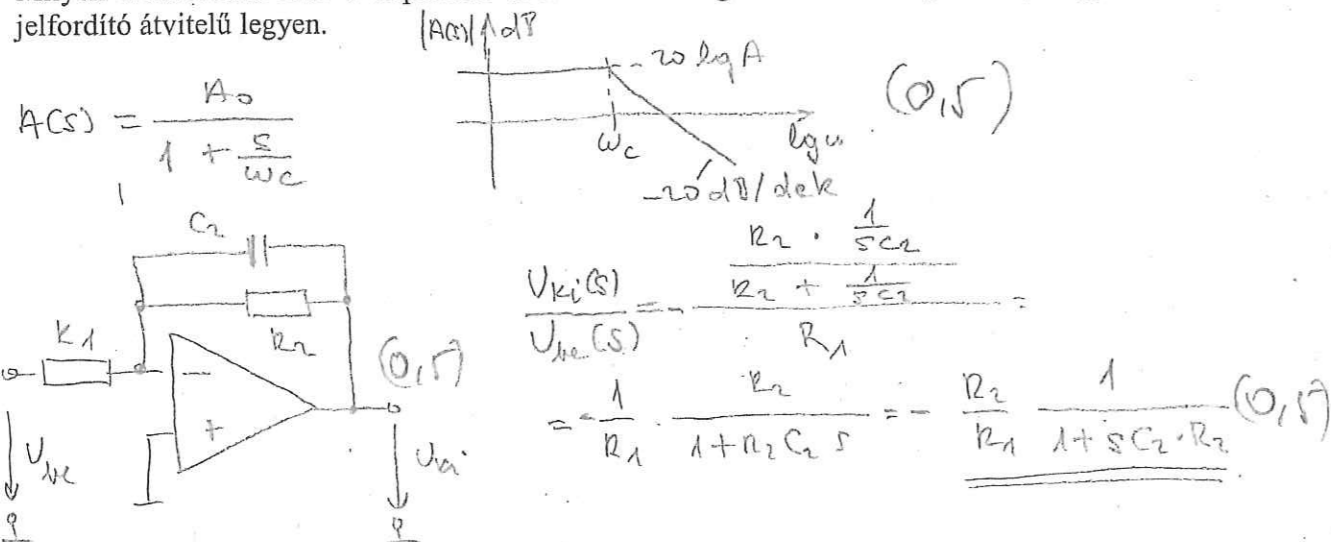 jelfordító átvitelű legyen.
|A(s)| dB
-- 20 lg A
(0,5)
A(s) = A₀ / (1 + s/ωc)
ωc
lg ω
-20 dB/dek
C₂
R₂
R₁
(0,5)
−
+
Ube
Uki
Uki(s)/Ube(s) = - ((R₂ · 1/(sC₂)) / (R₂ + 1/(sC₂))) / R₁ =
= - 1/R₁ · R₂/(1 + R₂C₂s) = - R₂/R₁ 1/(1 + sC₂·R₂) (0,5)